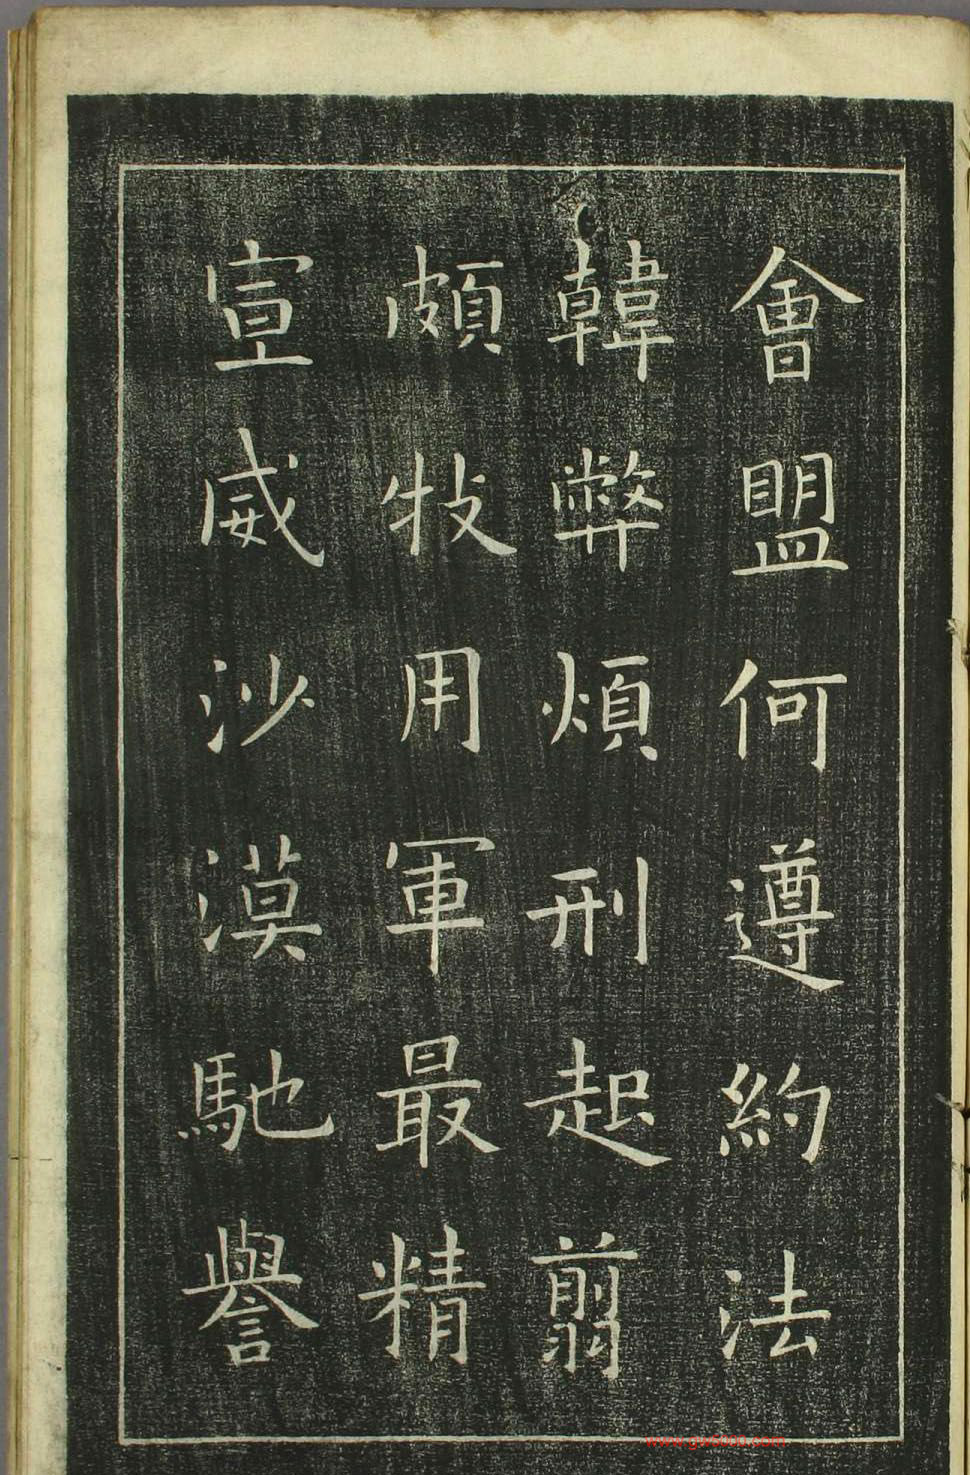 會盟何遵約法
韓弊煩刑起翦
頗牧用軍最精
宣威沙漠馳譽
www.gu5000.com